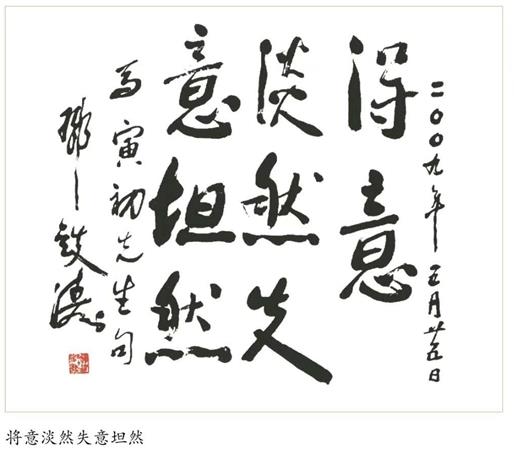 二〇〇九年五月廿五日
得意
淡然失
意坦然
马寅初先生句
鄧铁涛
将意淡然失意坦然